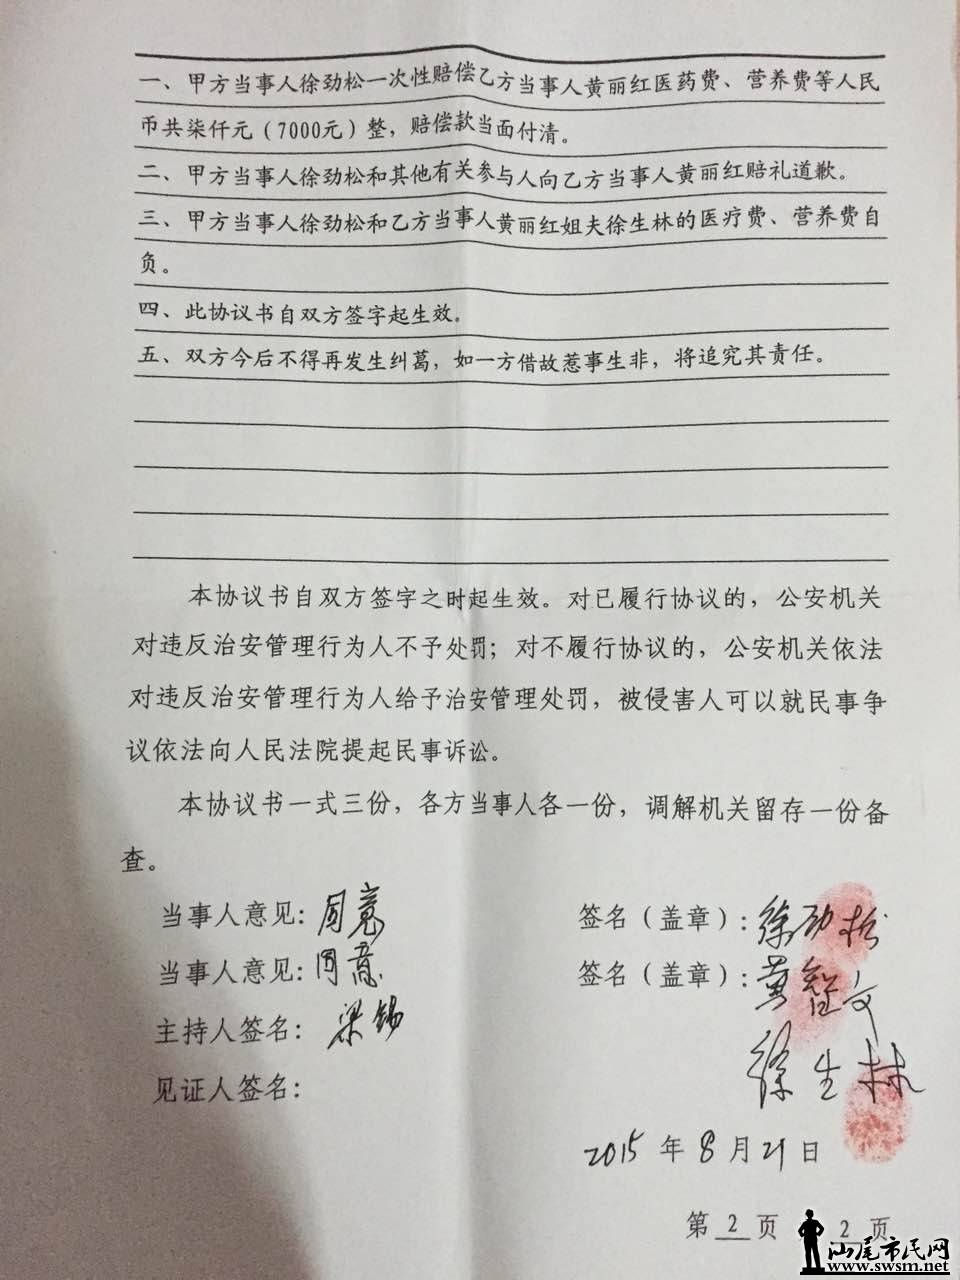 一、甲方当事人徐劲松一次性赔偿乙方当事人黄丽红医药费、营养费等人民
币共柒仟元（7000元）整，赔偿款当面付清。
二、甲方当事人徐劲松和其他有关参与人向乙方当事人黄丽红赔礼道歉。
三、甲方当事人徐劲松和乙方当事人黄丽红姐夫徐生林的医疗费、营养费自
负。
四、此协议书自双方签字起生效。
五、双方今后不得再发生纠葛，如一方借故惹事生非，将追究其责任。
本协议书自双方签字之时起生效。对已履行协议的，公安机关
对违反治安管理行为人不予处罚；对不履行协议的，公安机关依法
对违反治安管理行为人给予治安管理处罚，被侵害人可以就民事争
议依法向人民法院提起民事诉讼。
本协议书一式三份，各方当事人各一份，调解机关留存一份备
查。
当事人意见：同意 签名（盖章）：徐劲松
当事人意见：同意 签名（盖章）：黄智文
主持人签名：梁锡
徐生林
见证人签名：
2015年8月21日
第 2 页 2 页
汕尾市民网
www.swsm.net